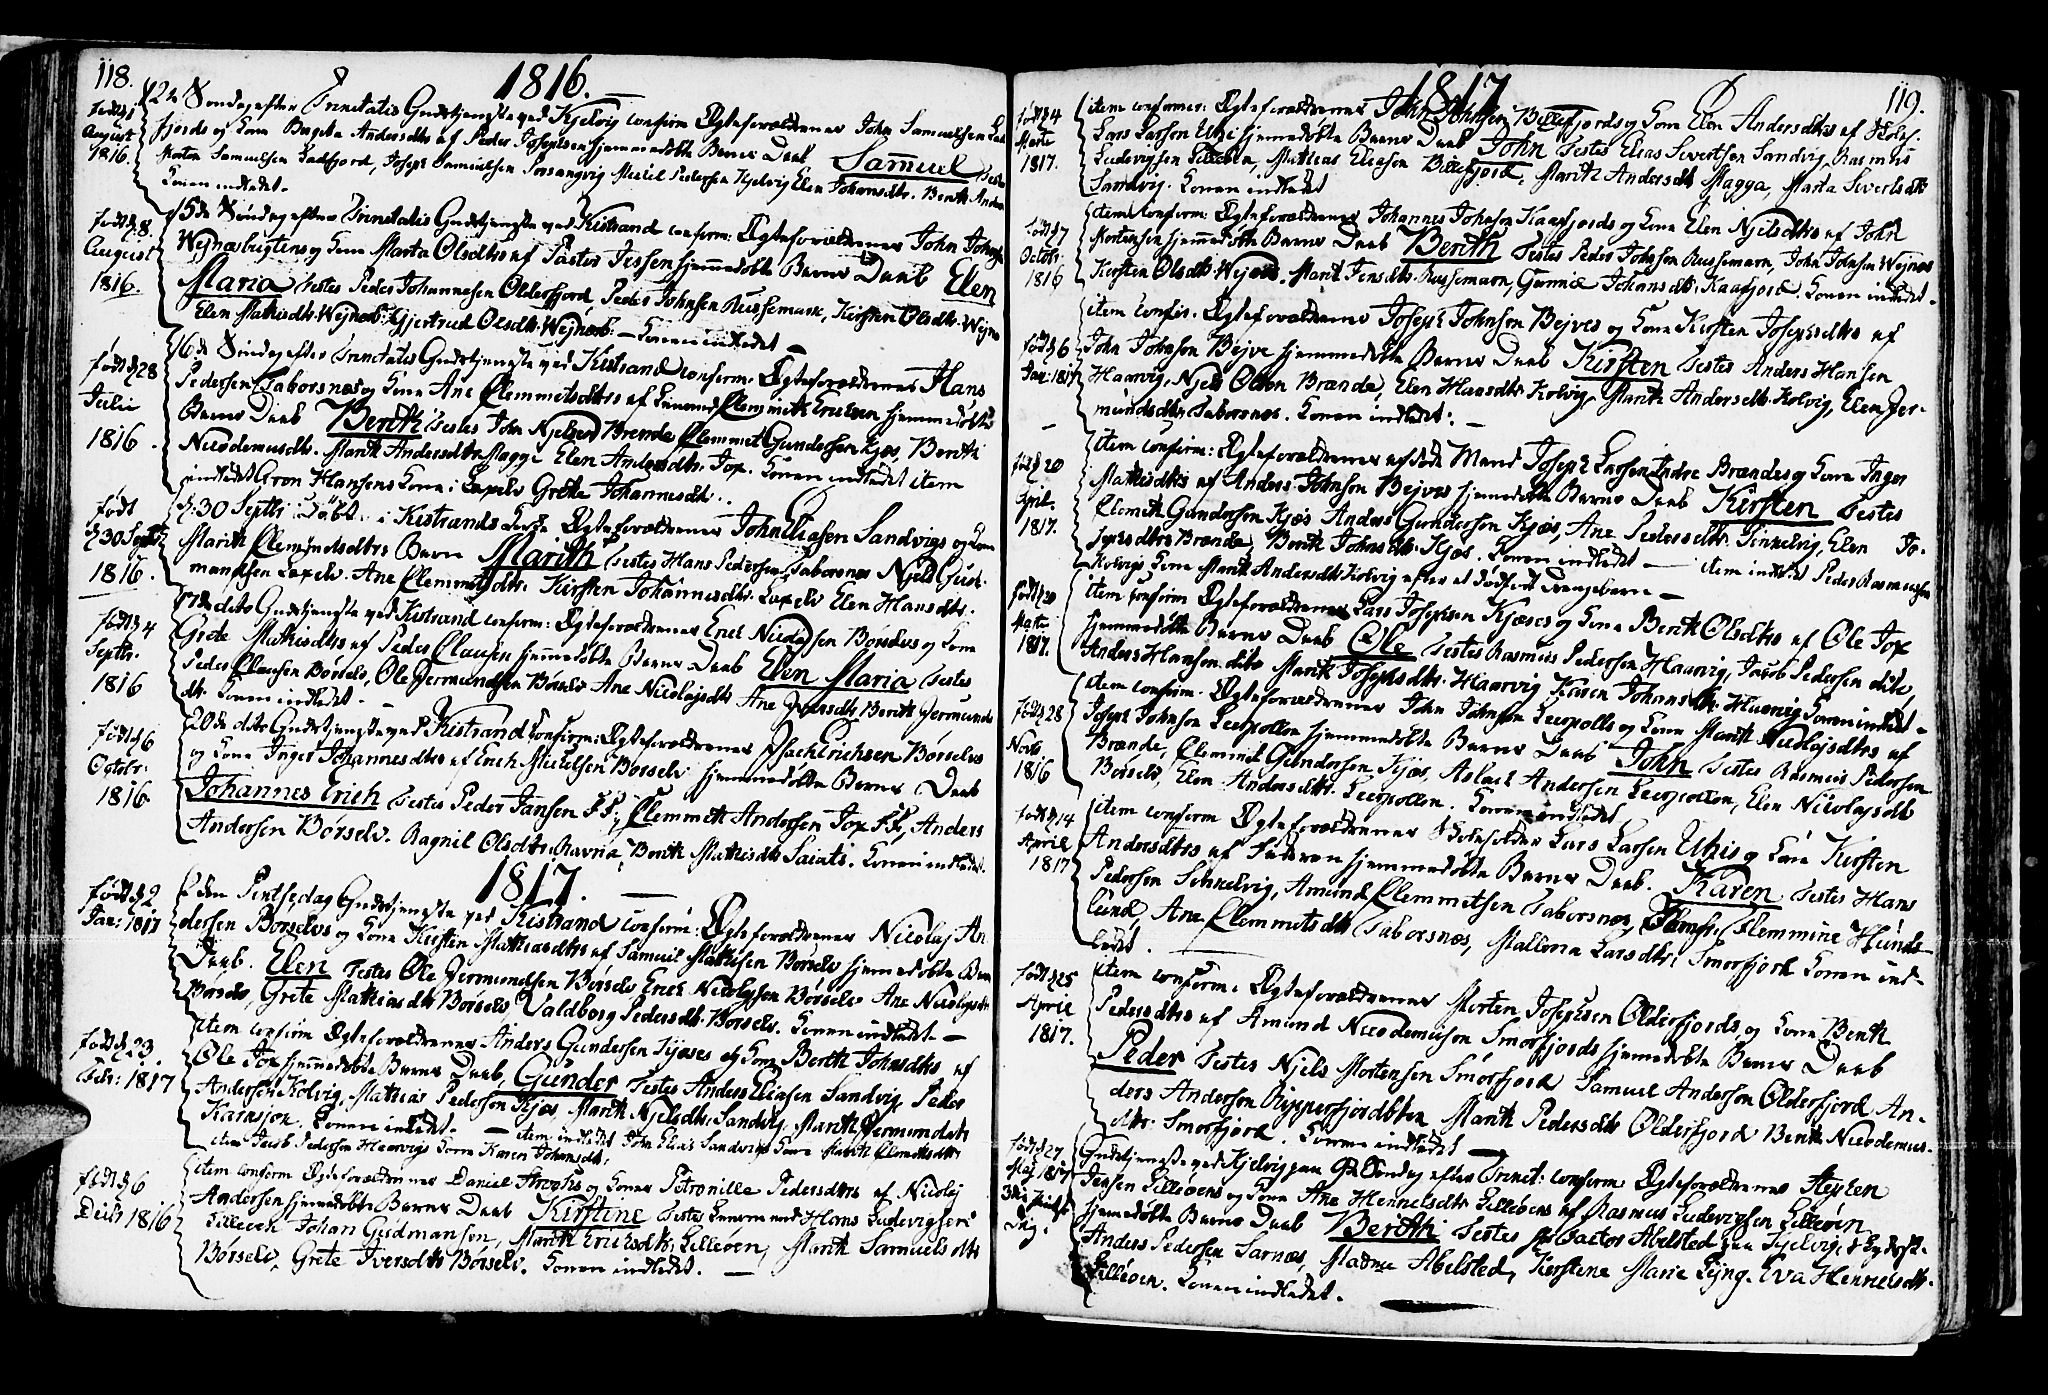 118.
1816.
født d: 1 August 1816.
12te Søndag efter Trinitatis Gudstjeneste ved Kjelvig confirm Ægteforældrenes John Samuelsen
fjords og Kone Andersdtrs af Peder Josephsen hjemmedøbte Barns Daab Samuel Testes
Morten Samuelsen Ladfjord, Joseph Samuelsen Porsangvig Mikkel Pedersen Kjelvig Elen Johansdtr. Berith Anders
Konen indledet.
født d: 8. August 1816.
15de Søndag efter Trinitatis Gudstjeneste ved Kistrand conform: Ægteforældrenes John Johns
Wejnæsbugtens og Kone Marta Olsdtrs af Pastor Jessen hjemmedøbte Barns Daab Elen
Maria Testes Peder Johannesen Olderfjord, Peder Johnsen Russemark, Kirsten Olsdtr: Wejnæs
Elen Mathisdtr: Wejnæsb: Gjertrud Olsdtr: Wejnæsb: – Konen indledet –
født d: 28 Julii 1816.
16de Søndag efter Trinitatis Gudstjeneste ved Kistrand conform: Ægteforældrenes Hans
Pedersen Taborsnæs og Kone Ane Clemmitsdtrs af Clemmit Erichsen hjemmedøbte
Barns Daab Berith Testes John Njelsen Brende Clemmet Gundersen Kjæs, Berith
Nicodemusdtr. Marith Andersdtr. Magge Elen Andersdtr. Jox. Konen indledet item
indledet Aron Hansens Kone i Laxelv Grete Johannesdtr.
født d: 30 Septbr 1816.
d: 30 Septbr: Døbt i Kistrands Kirke Ægteforældrenes John Eliasen Sandvigs og Kone
Marith Clemmetsdtrs Barn Marith Testes Hans Pedersen Taborsnæs Njels Gud-
mundsen Laxelv. Ane Clemmetsdtr. Kirsten Johannisdtr. Laxelv Elen Hansdtr.
født d: 4 Septbr. 1816
17de dito Gudstjeneste ved Kistrand conform: Ægteforældrenes Erich Nicolajsen Børselvs og Kone
Grete Mathisdtrs af Peder Clausen hjemmedøbte Barns Daab Elen Maria Testes
Peder Clausen Børselv, Ole Jermundsen Børselv Ane Nicolajsdtr Ane Jversdtr. Berith Jermunds
dtr. Konen indledet. –
født d: 6 Octobr: 1816
20de dito Gudstjeneste ved Kistrand conform: Ægteforældrenes Isach Erichsen Børselvs
og Kone Inger Johannesdtrs af Erich Mikkelsen Børselv hjemmedøbte Barns Daab
Johannes Erich Testes Peder Jansen Clemmet Andersen Jox Anders
Andersen Børselv. Ragnil Olsdtr: Ravna, Berith Mathisdtr Saiats. Konen indledet.
1817.
født d: 2 Jan: 1817
2den Pintsedag Gudstjeneste ved Kistrand conform: Ægteforældrenes Nicolaj An
dersen Børselvs og Kone Kirsten Mathiasdtrs af Samuel Mathisen Børselv hjemmedøbte Barns
Daab. Elen Testes Ole Jermundsen Børselv Erich Nicolajsen Børselv Ane Nicolajsdtr
Børselv, Grete Mathiasdtr Børselv, Valdborg Pedersdtr. Børselv. Konen indledet. –
født d: 23 Febr: 1817
item conform Ægteforældrenes Anders Gundersen Kjæses og Kone Berith Johnsdtrs af
Ole Jox hjemmedøbte Barns Daab, Gunder Testes Anders Eliasen Sandvig, Peder
Andersen Kolvig, Mathias Pedersen Kjæs, Marith Njelsdtr. Sandvig, Marith Jermundsdtr
Karasjok. Konen indledet. – item indledet John Elias Sandvigs Kone Marith Clemetsdtr
item Jacob Pedersen Haarvigs Kone Karen Johansdtr.
født d: 6 Decbr 1816
item conform Ægteforældrenes Daniel og Kones Petronille Pedersdtrs af Nicolaj
Andersen hjemmedøbte Barns Daab Kirstine Testes Hans Ludevigsen
Lilleøen Johan Gudmansøn, Marith Erichsdtr. Lilleøen, Marith Samuelsdtr
Børselv, Grete Iversdtr Børselv. Konen indledet. –
1817
119.
født d: 4 Marti 1817.
item conform: Ægteforældrenes John Johnsen Billefjords og Kone Elen Andersdtrs af
Lars Larsen Utsi hjemmedøbte Barns Daab John Testes Elias Sivertsen Sandvig, Rasmus
Ludevigsen Lilleøen, Mathias Eliasen Billefjord, Marith Andersdtr Magga, Marta Sivertsdtr
Sandvig. Konen indledet
født d: 7 Octobr. 1816
item conform: Ægteforældrenes Johannes Johnsen Kaafjords og Kone Elen Njelsdtrs af John
Mortensen hjemmedøbte Barns Daab Berith Testes Peder Johnsen Russemarn, John Johnsen Wejnæs
Kirsten Olsdtr. Wejnæs. Marit Jensdtr. Russemarn, Gunniæ Johansdtr. Kaafjord. Konen indledet.
født d: 6 Jan: 1817
item confir. Ægteforældrenes Joseph Johnsen Bejves og Kone Kirsten Josephsdtrs af
John Johnsen Bejve hjemmedøbte Barns Daab Kirsten Testes Anders Hansen
Haarvig, Njels Olsen Brænde, Elen Hansdtr Kolvig, Marith Andersdtr. Kolvig, Elen Jer-
mundsdtr Taborsnæs. Konen indledet: –
født d: 20 April. 1817.
item conform: Ægteforældrenes afdøde Mand Joseph Larsen Indre Brændes og Kone Inger
Mathisdtrs af Anders Johnsen Bejves hjemmedøbte Barns Daab Kirsten Testes
Clemit Gundersen Kjæs Anders Gundersen Kjæs, Ane Pedersdtr. Sinkelvig, Elen Jo-
sephsdtr: Brænde, Berith Johnsdtr. Kjæs. Konen indledet – item indledet Peder Rasmussen
Kolvigs Kone Marith Andersdtr Kolvig efter et dødfødt Drengebarn –
født d: 20 Marti 1817.
item conform Ægteforældrenes Lars Josephsen Kjæses og Kone Berith Olsdtrs af Ole Jox
hjemmedøbte Barns Daab Ole Testes Rasmus Pedersen Haarvig, Jacob Pedersen dito,
Anders Hansen dito Marith Josephsdtr. Haarvig Karen Johansdtr. Haarvig Konen indledt –
født d: 28 Novb 1816
item conform. Ægteforældrenes John Johnsen Leerpolls og Kone Marith Nicolajsdtrs af
Joseph Johnsen Leerpollen hjemmedøbte Barns Daab John Testes Rasmus Pedersen
Brænde, Clemmet Gundersen Kjæs, Aslach Andersen Leerpollen, Elen Nicolajsdtr
Børselv, Elen Andersdtr. Leerpollen. Konen indledet
født d: 14 April 1817
item conform Ægteforældrenes Skoleholder Lars Larsen Utsis og Kone Kirsten
Andersdtrs af Faderen hjemmedøbte Barns Daab. Karen Testes Hans
Pedersen Sinkelvig, Amund Clemmitsen Taborsnæs, Clemmine Hunds-
lund, Ane Clemmitsdtr Taborsnæs, Mallena Larsdtr: Smørfjord Konen ind-
ledet.
født d: 25 April 1817.
item conform. Ægteforældrenes Morten Josephsen Olderfjords, og Kone Berith
Pedersdtrs af Amund Nicodemussen Smørfjords hjemmedøbte Barns Daab
Peder Testes Njels Mortensen Smørfjord Samuel Andersen Olderfjord An-
ders Andersen Ripperfjordbten Marith Pedersdtr Olderfjord Berith Nicodemus-
dtr: Smørfjord. Konen indledet –
født d: 27 Maj 1817 3die Pintse Dag.
Gudstjeneste ved Kjelvig paa 9de Søndag efter Trinit: conform Ægteforældrenes
Jensen Lilleøens og Kone Ane Henrichsdtr Lilleøens af Rasmus Ludevigsen Lilleøen
hjemmedøbte Barns Daab Berith Testes Factor Abelsted paa Kjelvig,
Anders Pedersen Sarnæs, Madme Abelsted, Kirstene Marie Lÿng. Eva Henrichsdtr.
Lilleøen. Konen indledet.